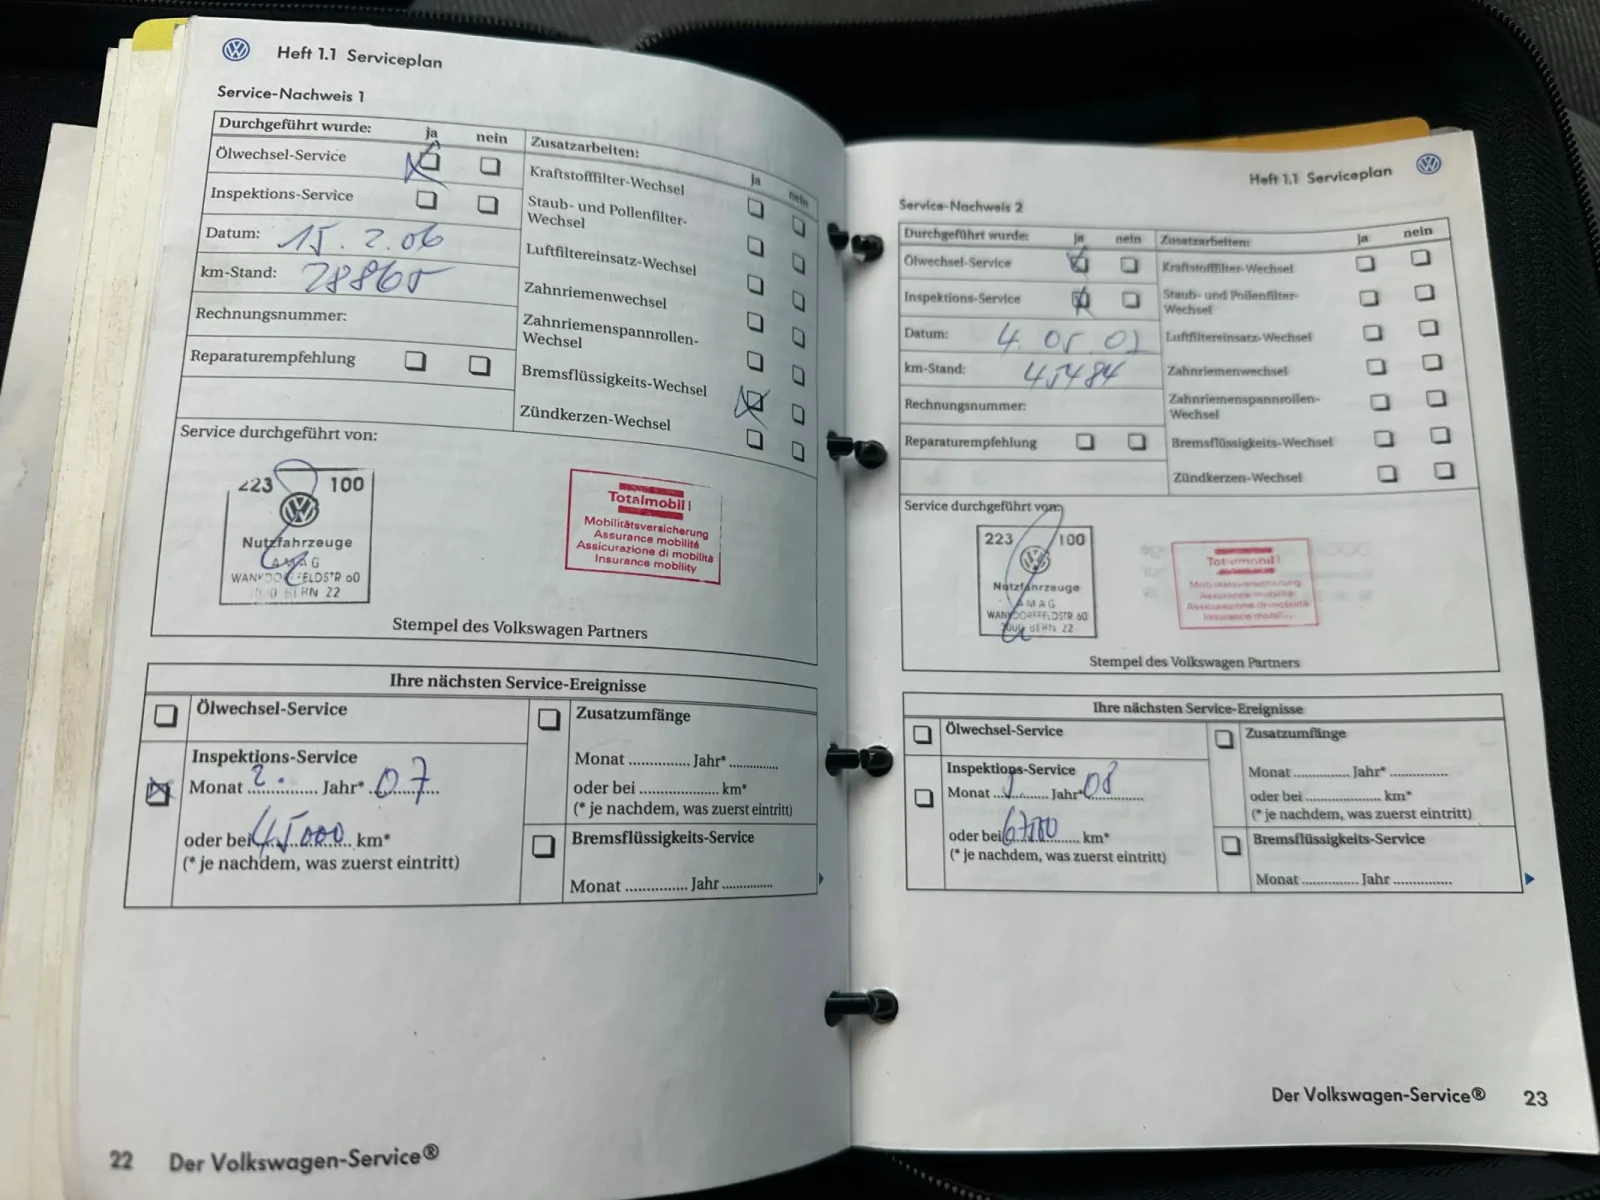 Heft 1.1 Serviceplan
Service-Nachweis 1
Durchgeführt wurde: ja nein
Ölwechsel-Service
Inspektions-Service
Datum: 15.2.06
km-Stand: 28865
Rechnungsnummer:
Reparaturempfehlung
Zusatzarbeiten: ja nein
Kraftstofffilter-Wechsel
Staub- und Pollenfilter-
Wechsel
Luftfiltereinsatz-Wechsel
Zahnriemenwechsel
Zahnriemenspannrollen-
Wechsel
Bremsflüssigkeits-Wechsel
Zündkerzen-Wechsel
Service durchgeführt von:
223 100
Nutzfahrzeuge
AMAG
BERN 22
Totalmobil!
Mobilitätsversicherung
Assurance mobilité
Assicurazione di mobilità
Insurance mobility
Stempel des Volkswagen Partners
Ihre nächsten Service-Ereignisse
Ölwechsel-Service
Inspektions-Service
Monat 2. Jahr* 07
oder bei 45000 km*
(* je nachdem, was zuerst eintritt)
Zusatzumfänge
Monat .............. Jahr* ..............
oder bei ...................... km*
(* je nachdem, was zuerst eintritt)
Bremsflüssigkeits-Service
Monat .............. Jahr ..............
22 Der Volkswagen-Service®
Heft 1.1 Serviceplan
Service-Nachweis 2
Durchgeführt wurde: ja nein
Ölwechsel-Service
Inspektions-Service
Datum: 4.05.07
km-Stand: 45484
Rechnungsnummer:
Reparaturempfehlung
Zusatzarbeiten: ja nein
Kraftstofffilter-Wechsel
Staub- und Pollenfilter-
Wechsel
Luftfiltereinsatz-Wechsel
Zahnriemenwechsel
Zahnriemenspannrollen-
Wechsel
Bremsflüssigkeits-Wechsel
Zündkerzen-Wechsel
Service durchgeführt von:
223 100
Nutzfahrzeuge
AMAG
WANKDORFFELDSTR 60
BERN 22
Totalmobil!
Mobilitätsversicherung
Assurance mobilité
Assicurazione di mobilità
Insurance
Stempel des Volkswagen Partners
Ihre nächsten Service-Ereignisse
Ölwechsel-Service
Inspektions-Service
Monat Jahr* 08
oder bei km*
(* je nachdem, was zuerst eintritt)
Zusatzumfänge
Monat .............. Jahr* ..............
oder bei ...................... km*
(* je nachdem, was zuerst eintritt)
Bremsflüssigkeits-Service
Monat .............. Jahr ..............
Der Volkswagen-Service® 23